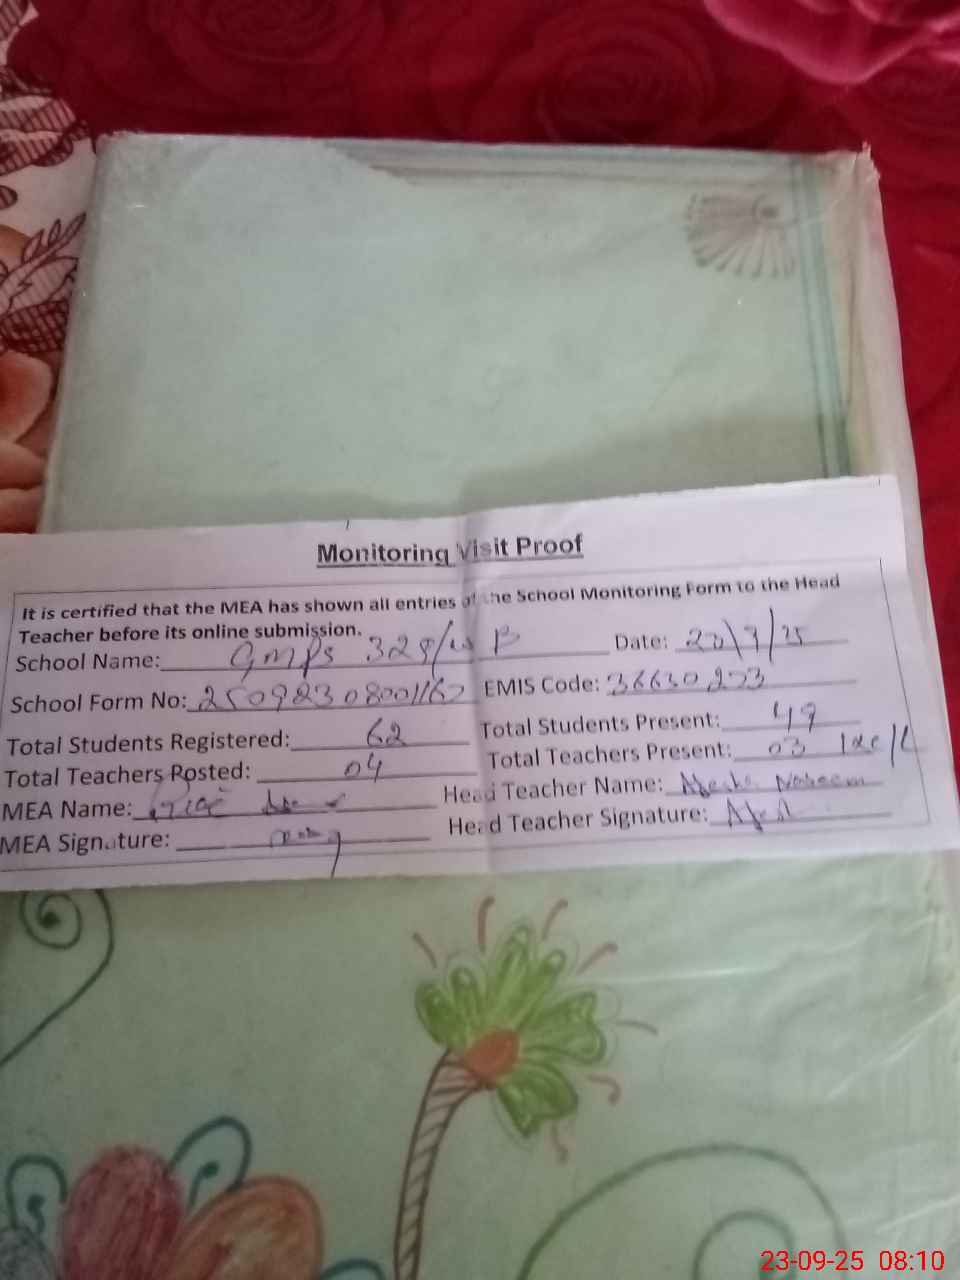 Monitoring Visit Proof
It is certified that the MEA has shown all entries of the School Monitoring Form to the Head
Teacher before its online submission.
School Name: GMPS 328/WB Date:
School Form No: EMIS Code: 36630253
Total Students Registered: 62 Total Students Present: 49
Total Teachers Posted: 04 Total Teachers Present: 03
MEA Name: Head Teacher Name: Naseem
MEA Signature: Head Teacher Signature:
23-09-25 08:10